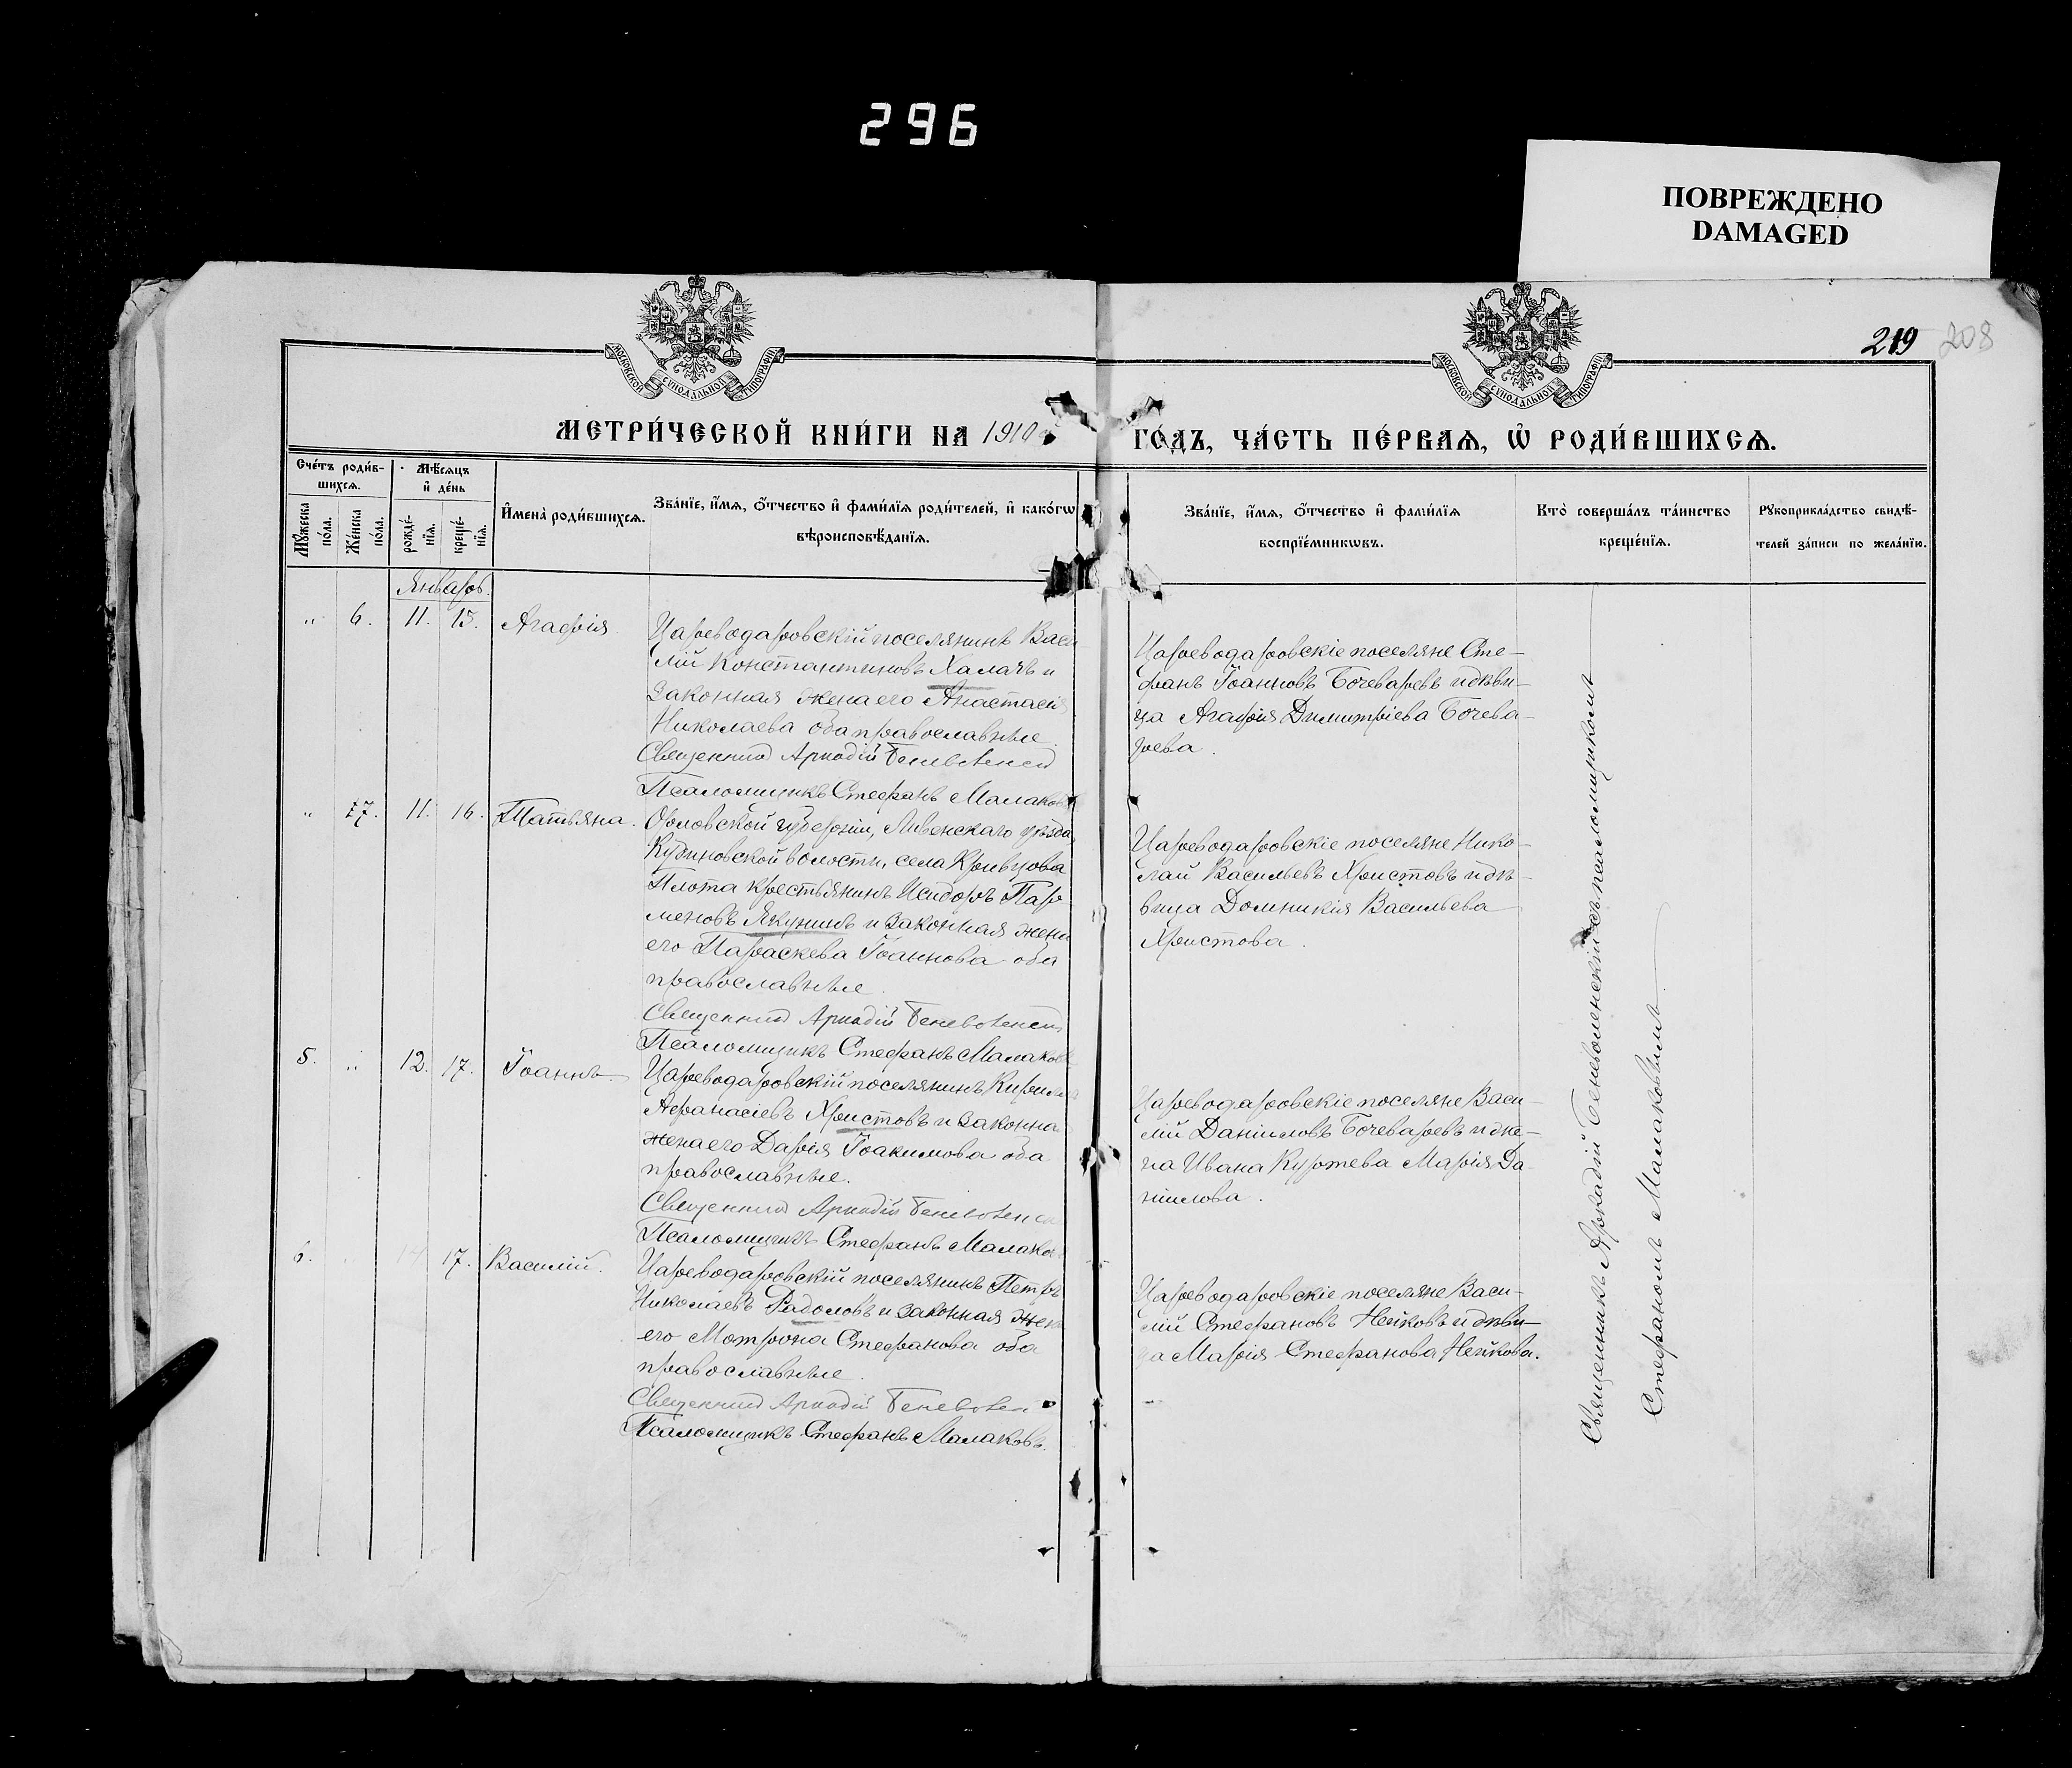 296
ПОВРЕЖДЕНО
DAMAGED
219 208
МОСКОВСКОЙ СѴНОДАЛЬНОЙ ТИПОГРАФІИ
МОСКОВСКОЙ СѴНОДАЛЬНОЙ ТИПОГРАФІИ
МЕТРИ́ЧЕСКОЙ КНИ́ГИ НА 1910
ГО́ДЪ, ЧА́СТЬ ПЕ́РВАѦ, Ѡ҆ РОДИ́ВШИХСѦ.
Сче́тъ роди́в-
шихсѧ.
Мѣ́сѧцъ
и҆ де́нь
Мꙋ́жеска по́ла.
Же́нска по́ла.
рожде́-
нїѧ.
креще́-
нїѧ.
И҆мена̀ роди́вшихсѧ.
Зва́нїе, и҆́мѧ, ѻ҆́тчество и҆ фами́лїѧ роди́телей, и҆ како́гѡ
вѣроисповѣ́данїѧ.
Зва́нїе, и҆́мѧ, ѻ҆́тчество и҆ фами́лїѧ
воспрїе́мникѡвъ.
Кто̀ соверша́лъ та́инство
креще́нїѧ.
Рꙋкоприкла́дство свидѣ́-
телей за́писи по жела́нїю.
Январь.
" 6. 11. 15. Агафія
Цареводаровскій поселянинъ Васи
лій Константиновъ Халачъ и
законная жена его Анастасія
Николаева оба православные
Священник Аркадій Беневоленск
Псаломщикъ Стефанъ Малаковъ
Цареводаровскіе поселяне Сте-
фанъ Іоанновъ Бочеваревъ и дѣви-
ца Агафія Димитріева Бочева-
рева.
" 7. 11. 16. Татьяна.
Орловской губерніи, Ливенскаго уѣзда,
волости, села Кривцова
Плота крестьянинъ Исидоръ Пар
меновъ Якунинъ и законная жена
его Параскева Іоаннова оба
православные.
Священник Аркадій Беневоленск
Псаломщикъ Стефанъ Малаков
Цареводаровскіе поселяне Нико-
лай Васильевъ Христовъ и дѣ-
вица Домникія Васильева
Христова.
5. " 12. 17. Іоаннъ.
Цареводаровскій поселянинъ Кирилл
Афанасіевъ Христовъ и законна
жена его Дарія Іоакимова оба
православные.
Священник Аркадій Беневоленск
Псаломщикъ Стефанъ Малаков
Цареводаровскіе поселяне Васи-
лій Даніиловъ Бочеваревъ и же-
на Ивана Куртева Марія Да-
ніилова.
6. 14 17. Василій.
Цареводаровскій поселянинъ Петръ
Николаевъ Радоловъ и законная жена
его Матрона Стефанова оба
православные.
Священник Аркадій Беневолен
Псаломщикъ Стефанъ Малаковъ.
Цареводаровскіе поселяне Васи-
лій Стефановъ Нейковъ и дѣви-
ца Марія Стефанова Нейкова.
Священникъ Аркадій Беневоленскій съ псаломщикомъ
Стефаномъ Малаковымъ.